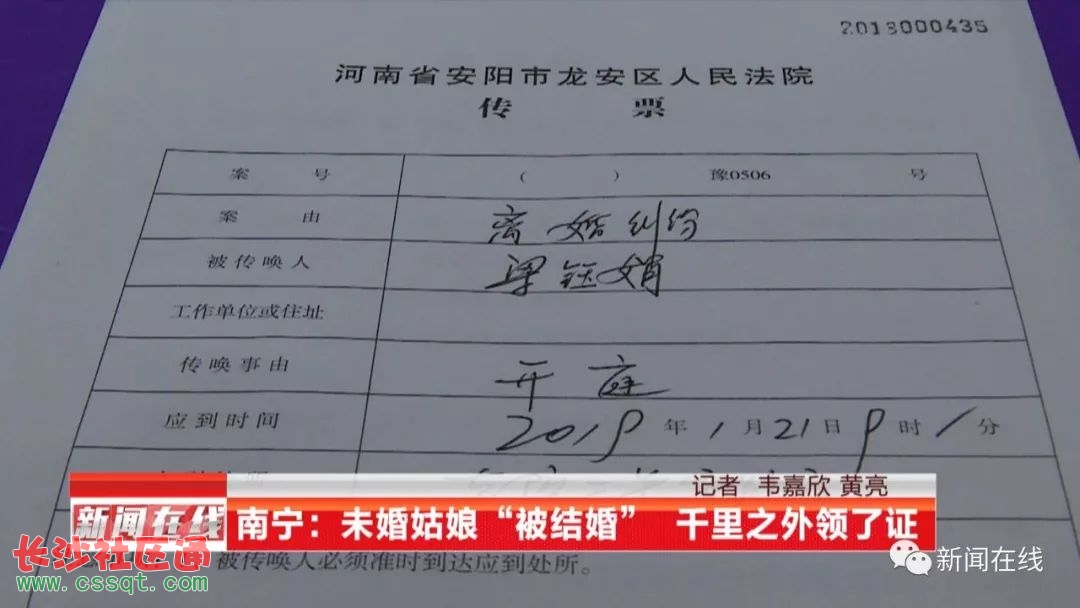 2018000435
河南省安阳市龙安区人民法院
传 票
案 号 ( ) 豫0506 号
案 由 离婚纠纷
被传唤人 梁钰娟
工作单位或住址
传唤事由 开庭
应到时间 2019年1月21日9时/分
记者 韦嘉欣 黄亮
新闻在线 南宁：未婚姑娘“被结婚” 千里之外领了证
长沙社区通
被传唤人必须准时到达应到处所。
www.cssqt.com
新闻在线